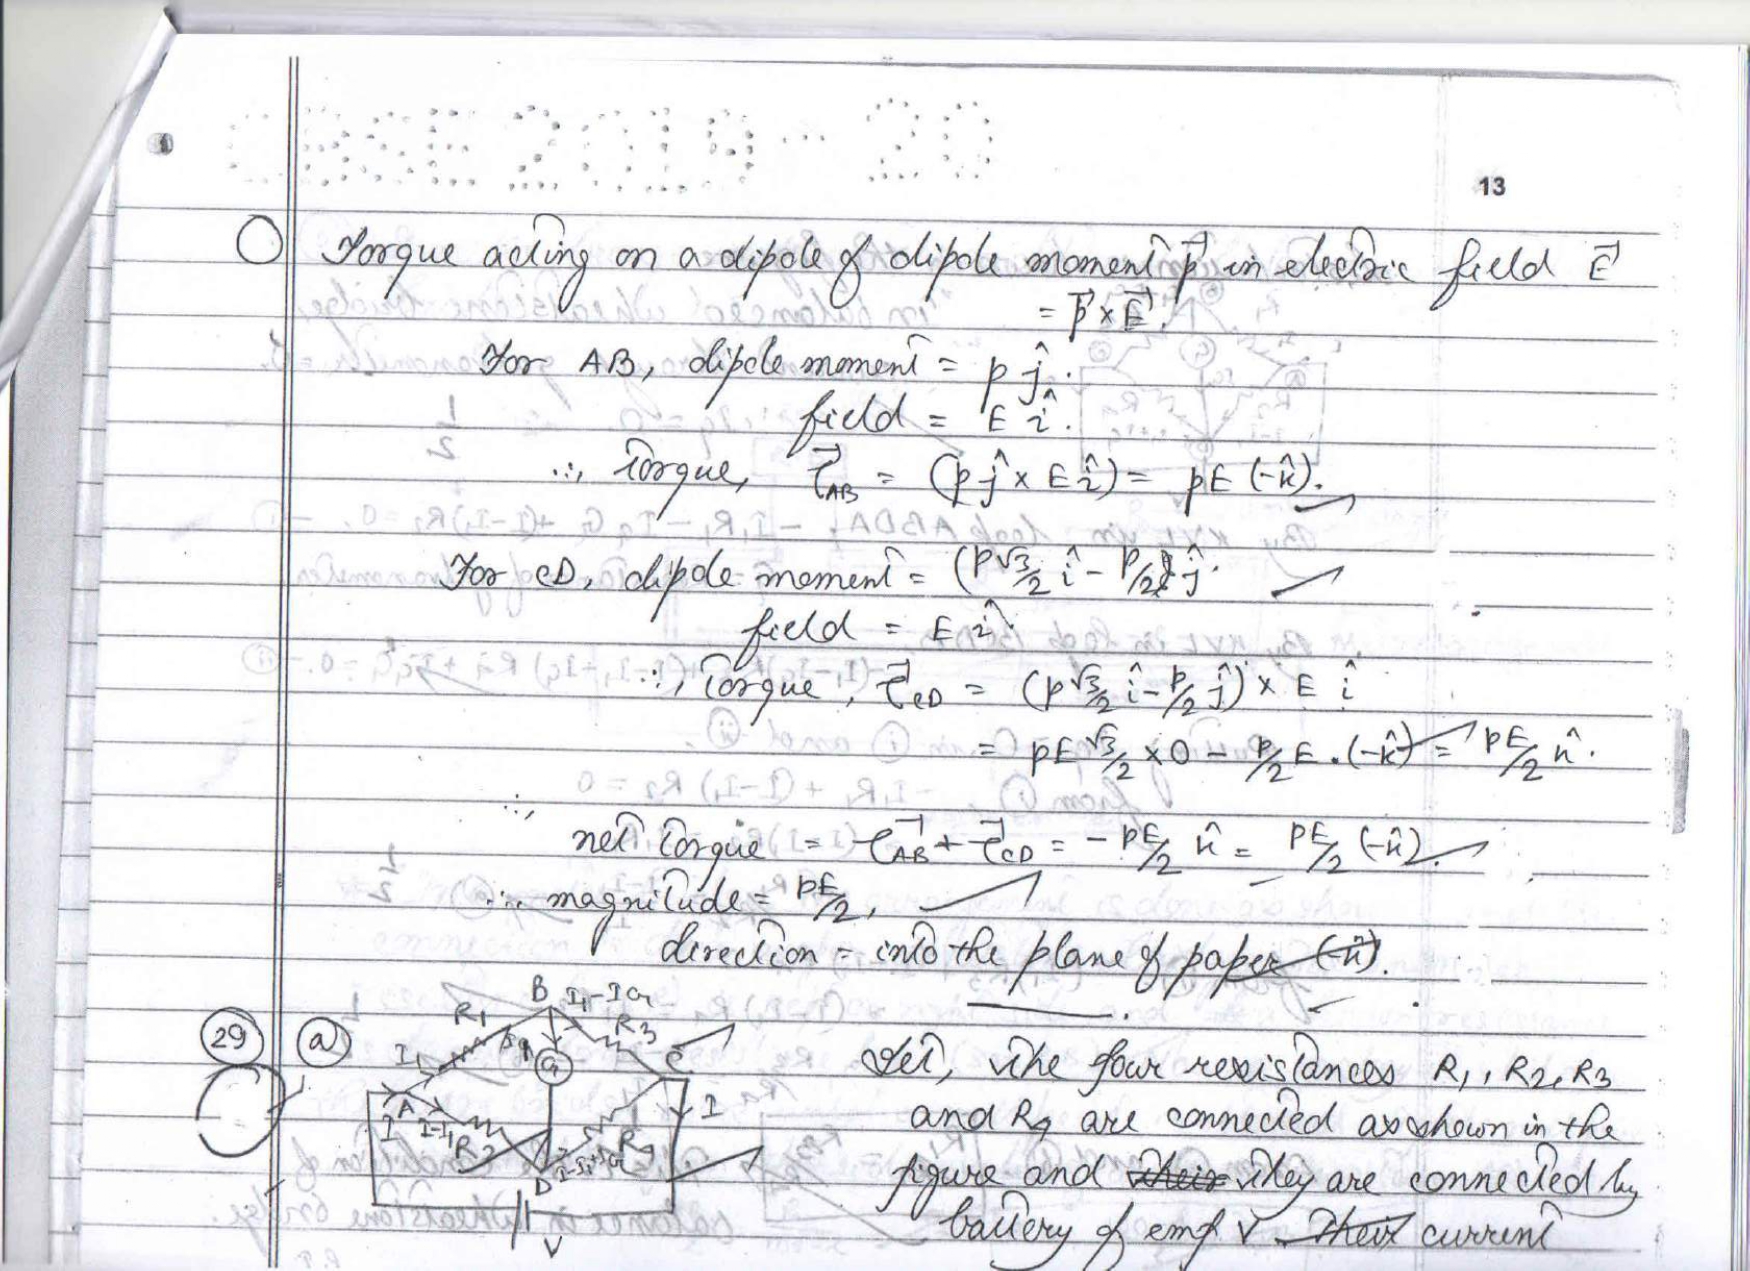 CBSE 2019-20
13
Torque acting on a dipole of dipole moment p⃗ in electric field E⃗
= p⃗ × E⃗.
For AB, dipole moment = p ĵ.
field = E î.
∴, Torque, τ⃗AB = (p ĵ × E î) = pE (-k̂).
For CD, dipole moment = (p√3/2 î - p/2 ĵ
field = E î
∴, Torque, τ⃗CD = (p√3/2 î - p/2 ĵ) × E î
= pE√3/2 × 0 - p/2 E . (-k̂) = pE/2 k̂.
∴,
net torque = τ⃗AB + τ⃗CD = - pE/2 k̂ = pE/2 (-k̂).
∴, magnitude = pE/2,
direction = into the plane of paper (-k̂).
29 a
B I1-IG
R1 R3
I1 Ig G C
A I
I I-I1 R2 R4
D I-I1+IG
V
Let, the four resistances R1, R2, R3
and R4 are connected as shown in the
figure and their they are connected by
battery of emf V. Their current